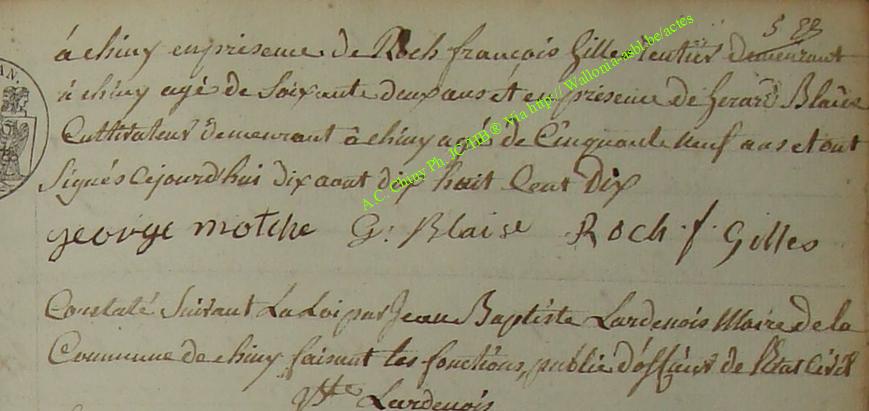 5 83
à chiny en presence de Roch françois Gille rentier demeurant
à chiny agé de Soixante deux ans et en presence de Gerard Blaise
Cultivateur demeurant à chiny agé de Cinquante neuf ans et ont
Signés cejourd'hui dix aout dix huit Cent dix
george motche G: Blaise Roch . f . Gilles
Constaté Suivant La Loi par Jean Baptiste Lardenois Maire de la
Commune de chiny faisant les fonctions, public d'officier de l'Etat Civil
Lardenois
A.C. Chiny Ph. JCHB® Via http:// Wallonia-asbl.be/actes